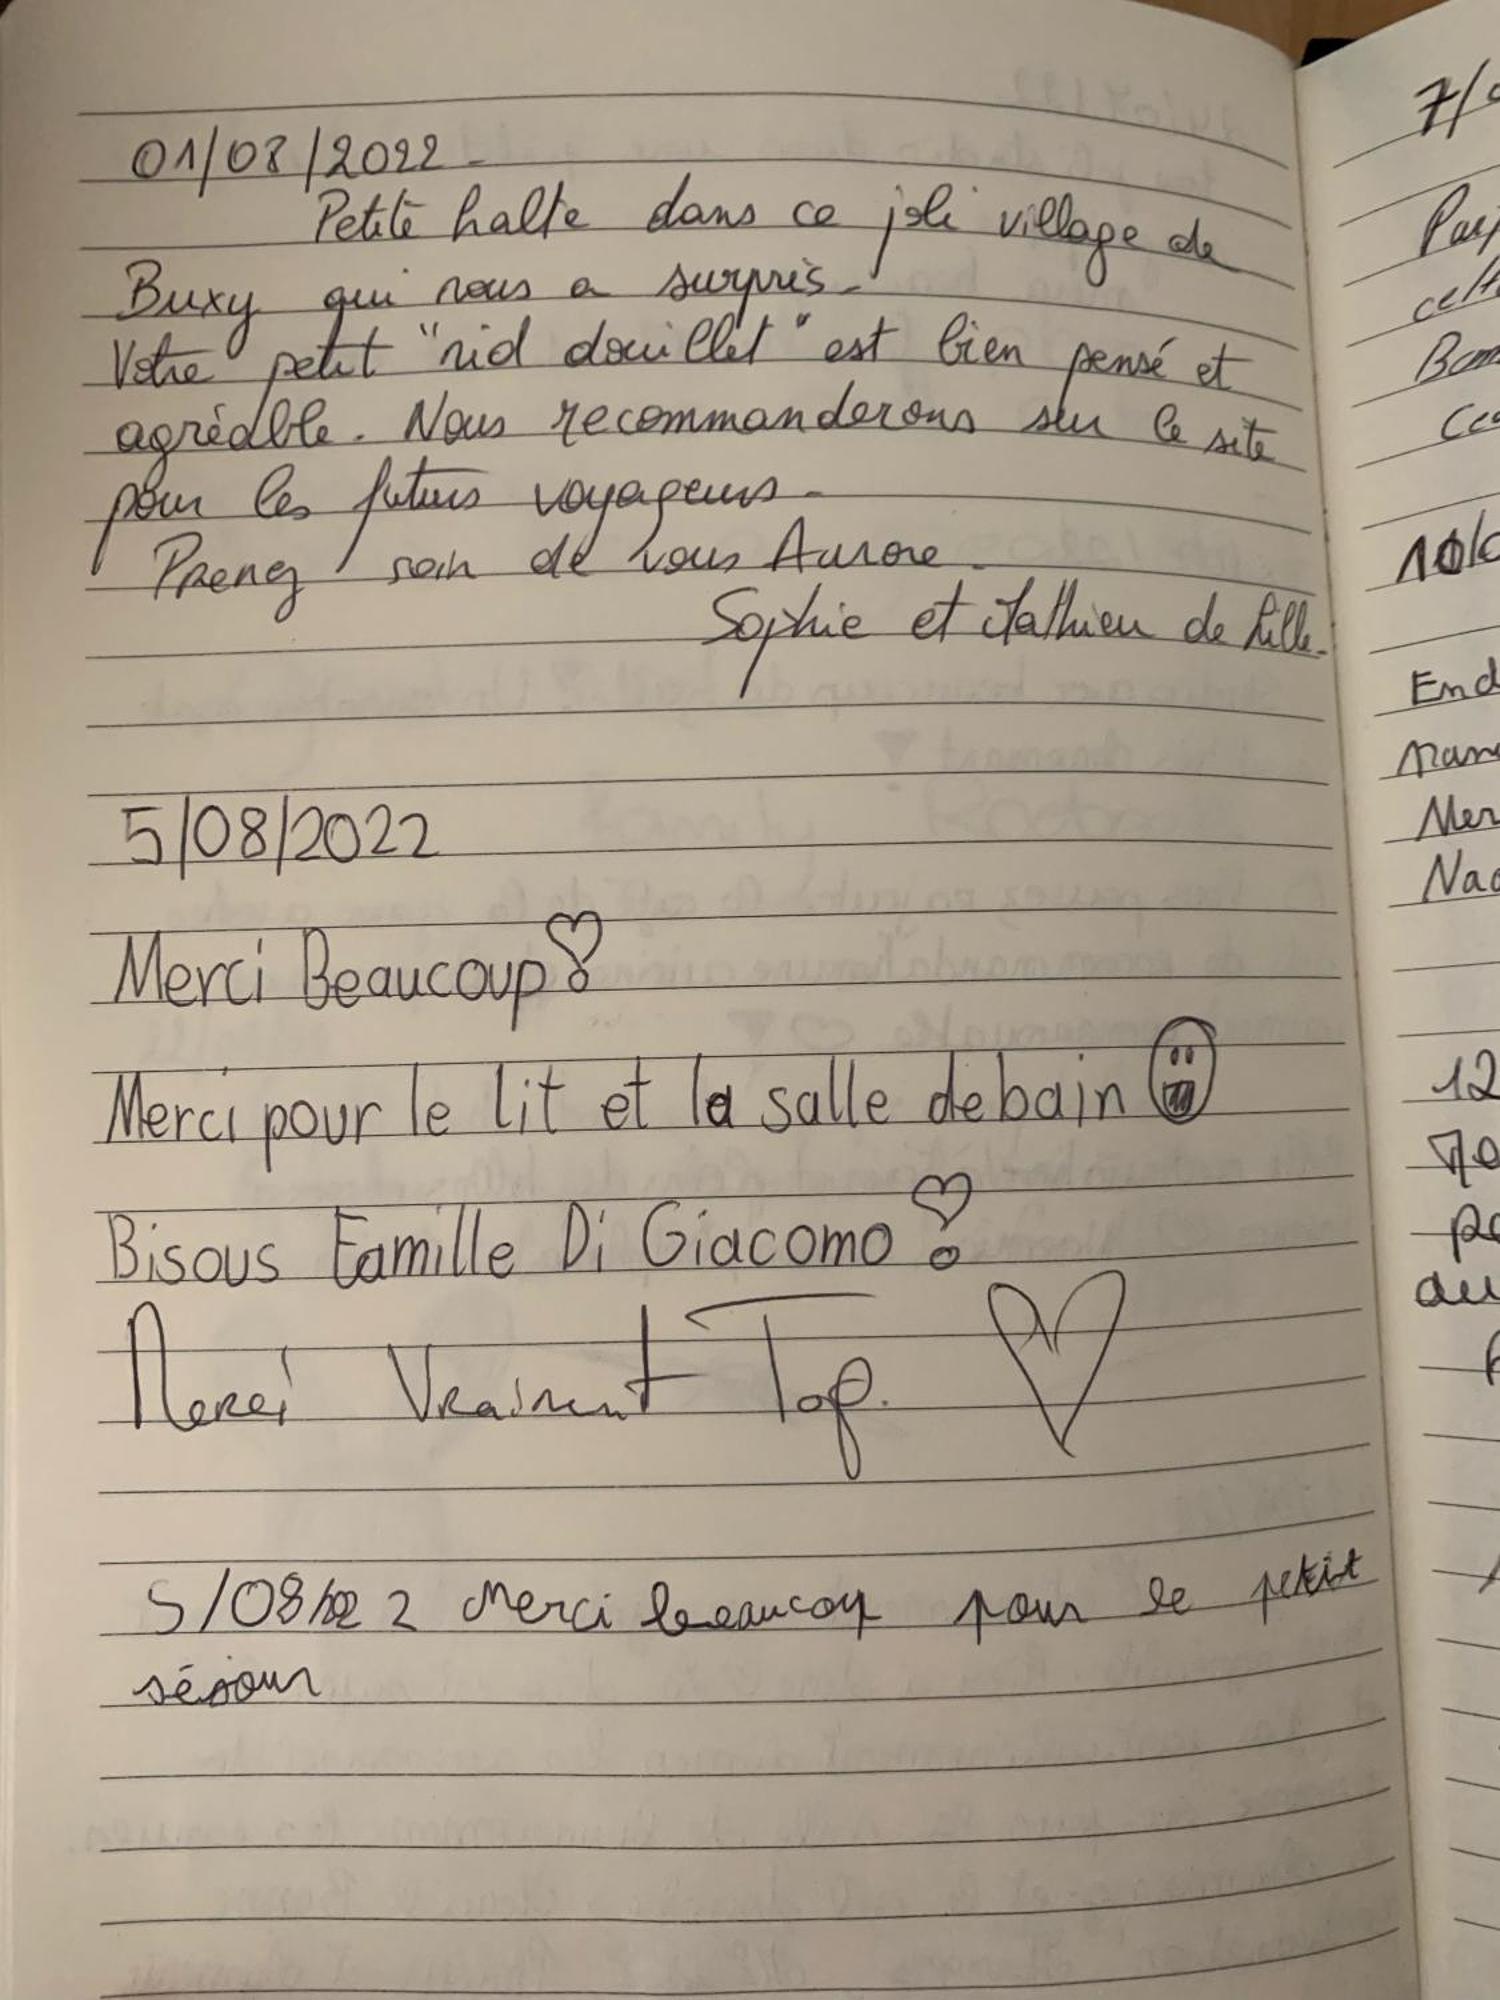 01/08/2022-
Petite halte dans ce joli village de
Buxy qui nous a surpris-
Votre petit "nid douillet" est bien pensé et
agréable. Nous recommanderons sur le site
pour les futurs voyageurs-
Prenez soin de vous Aurore.
Sophie et Mathieu de Lille.
5/08/2022
Merci Beaucoup!
Merci pour le lit et la salle de bain
Bisous Famille Di Giacomo!
Merci Vraiment Top.
5/08/2022 Merci beaucoup pour le petit
séjour
7/
10/
End
Mer
12